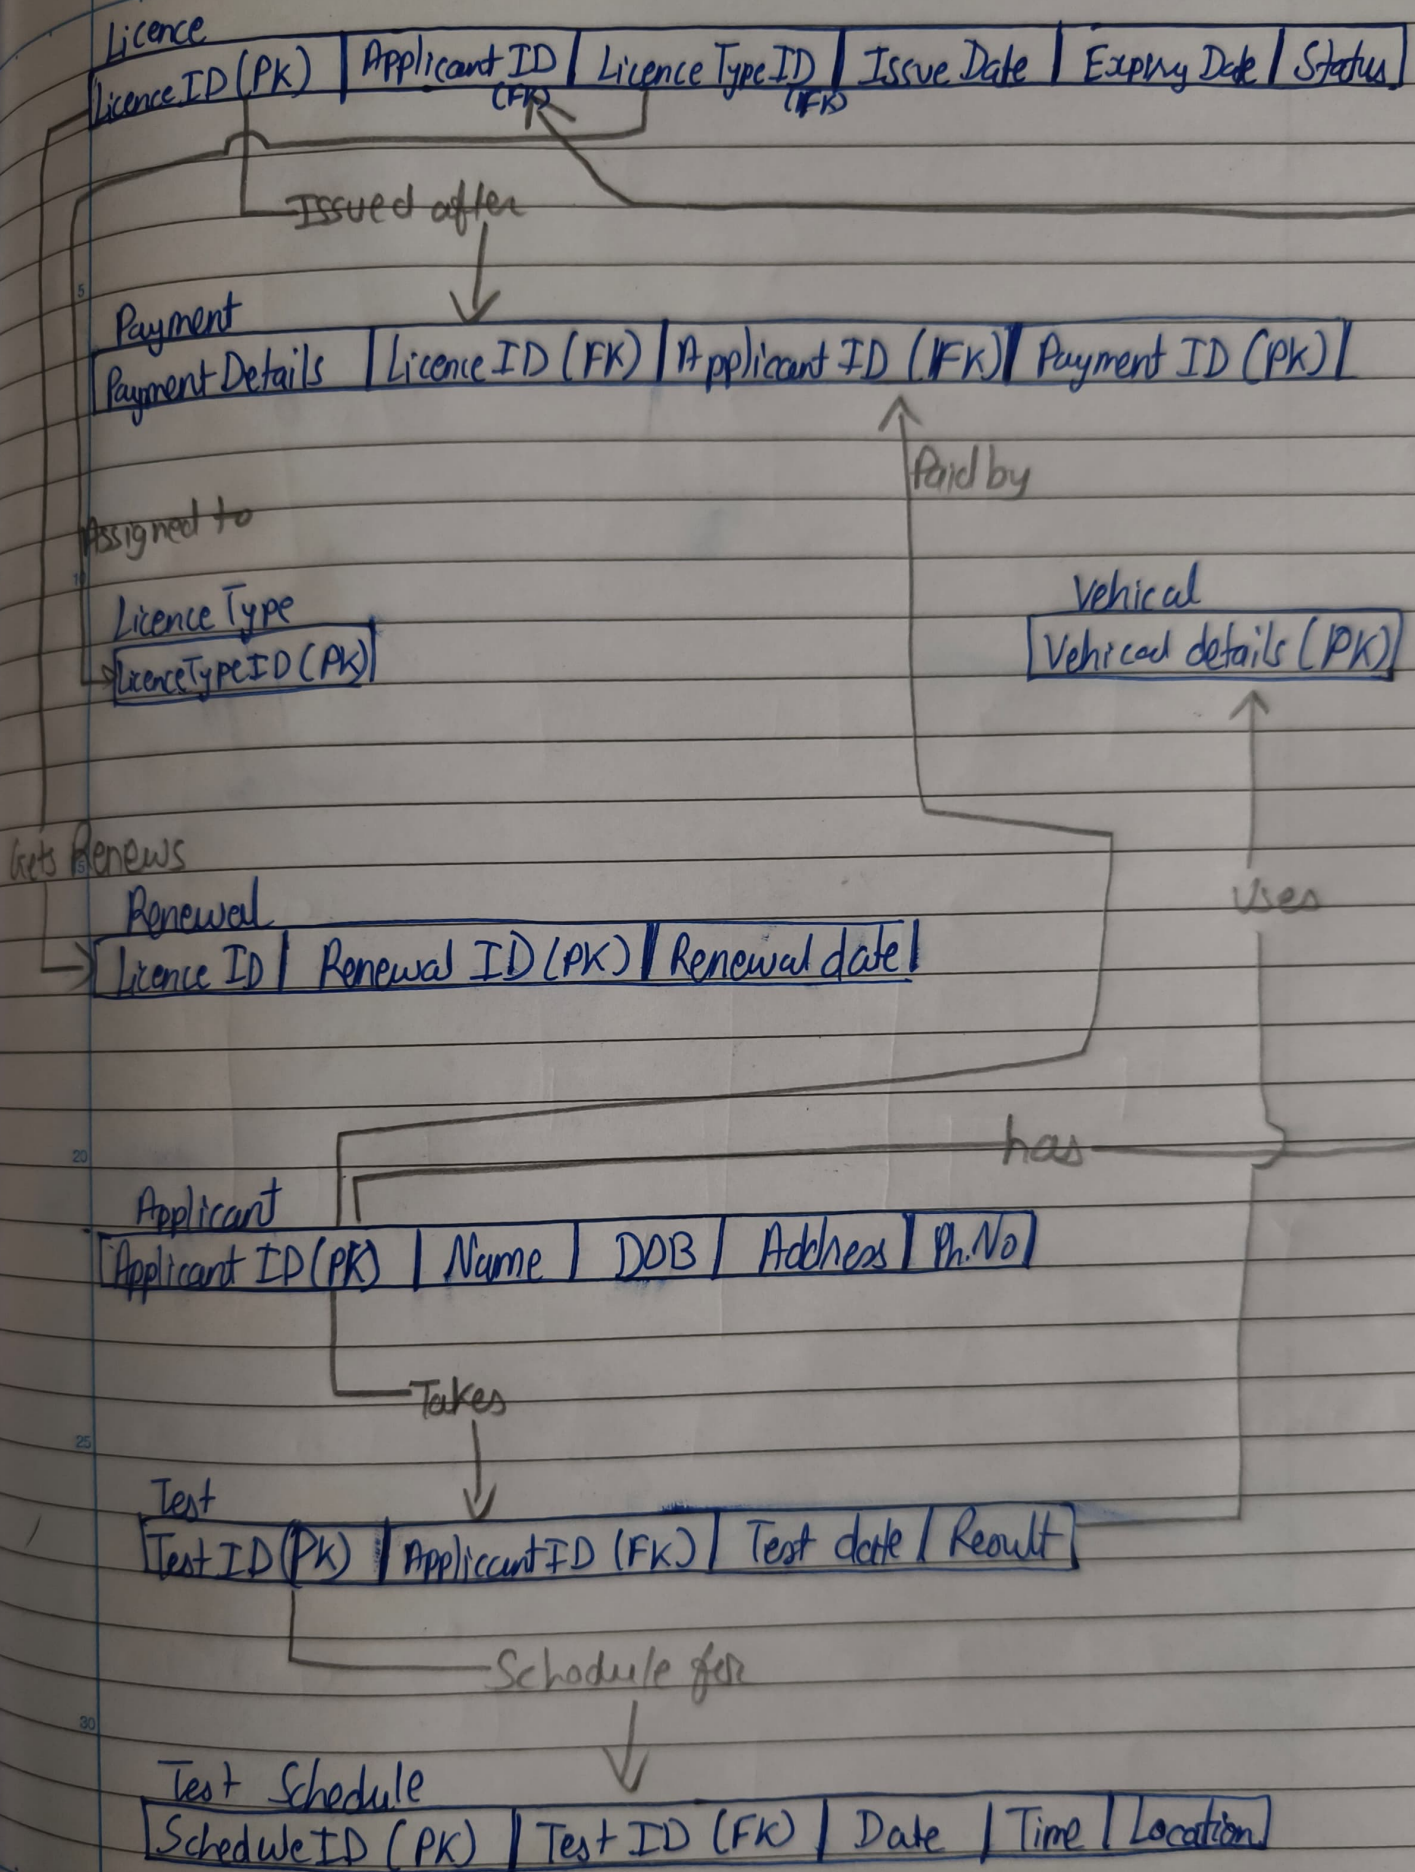 Licence
Licence ID (PK) Applicant ID (FK) Licence Type ID (FK) Issue Date Expiry Date Status
Issued after
5
Payment
Payment Details Licence ID (FK) Applicant ID (FK) Payment ID (PK)
Paid by
Assigned to
10
Vehical
Licence Type
Vehical details (PK)
LicenceTypeID (PK)
Gets Renews
Uses
Renewal
Licence ID Renewal ID (PK) Renewal date
has
20
Applicant
Applicant ID (PK) Name DOB Address Ph.No
Takes
25
Test
Test ID (PK) Applicant ID (FK) Test date Result
Schedule for
30
Test Schedule
Schedule ID (PK) Test ID (FK) Date Time Location